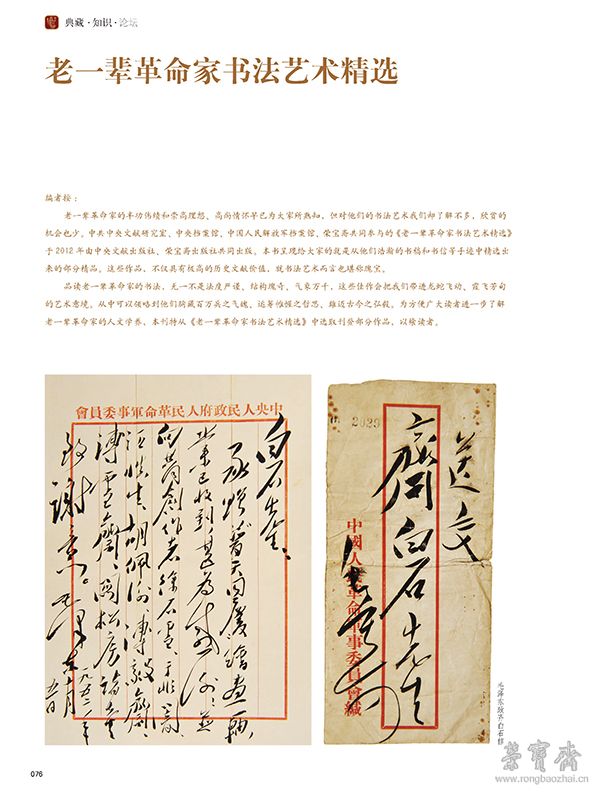 典藏·知识·论坛
老一辈革命家书法艺术精选
编者按：
老一辈革命家的丰功伟绩和崇高理想、高尚情怀早已为大家所熟知，但对他们的书法艺术我们却了解不多，欣赏的
机会也少。中共中央文献研究室、中央档案馆、中国人民解放军档案馆、荣宝斋共同参与的《老一辈革命家书法艺术精选》
于2012年由中央文献出版社、荣宝斋出版社共同出版。本书呈现给大家的就是从他们浩瀚的书稿和书信等手迹中精选出
来的部分精品。这些作品，不仅具有极高的历史文献价值，就书法艺术而言也堪称瑰宝。
品读老一辈革命家的书法，无一不是法度严谨、结构瑰奇、气象万千，这些佳作会把我们带进龙蛇飞动、霞飞芳甸
的艺术意境。从中可以领略到他们胸藏百万兵之气魄，运筹帷幄之哲思，雄迈古今之弘毅。为方便广大读者进一步了解
老一辈革命家的人文学养，本刊特从《老一辈革命家书法艺术精选》中选取刊登部分作品，以飨读者。
中央人民政府人民革命軍事委員會
白石先生、
承贈普天同慶繪畫一軸、
業已收到、甚為感謝！並
向共同創作者徐石雪、于非闇、
汪慎生、胡佩衡、溥毅齋、
溥雪齋、關松房諸先生
致謝意。毛澤東
一九五二年
十月
五日
2029
送交
齊白石先生
毛寄
中國人民革命軍事委員會緘
毛泽东致齐白石信
076
榮寶齋
www.rongbaozhai.cn